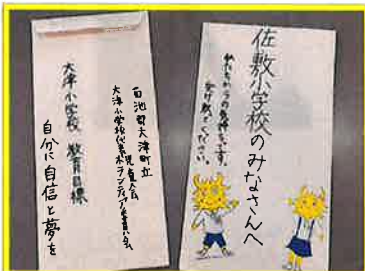 佐敷小学校のみなさんへ
私たちからの気持ちです。
受け取ってください。
菊池郡大津町立
大津小学校代表児童会
ボランティア委員会
大津小学校 教育目標
自分に自信と夢を